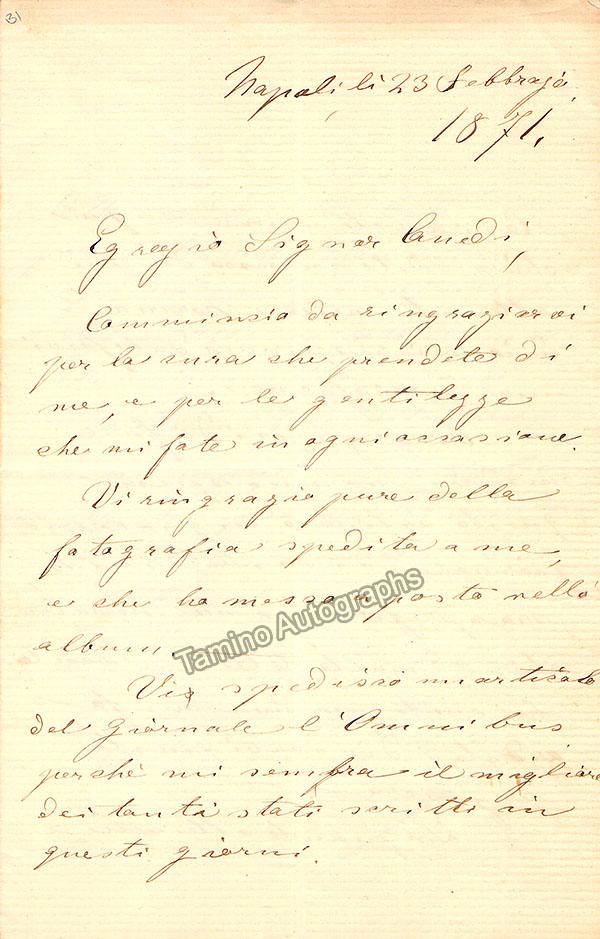 31
Napoli, li 23 Febbrajo
1871.
Egregio Signor Cuedi,
Comminsio da ringraziarvi
per la cura che prendete di
me, e per le gentilezze
che mi fate in ogni occasione.
Vi ringrazio pure della
fotografia spedita a me,
e che ho messo a posto nello
album.
Tamino Autographs
Via spedisco un articolo
del giornale l'Omnibus,
perchè mi sembra il migliore
dei tanti stati scritti in
questi giorni.